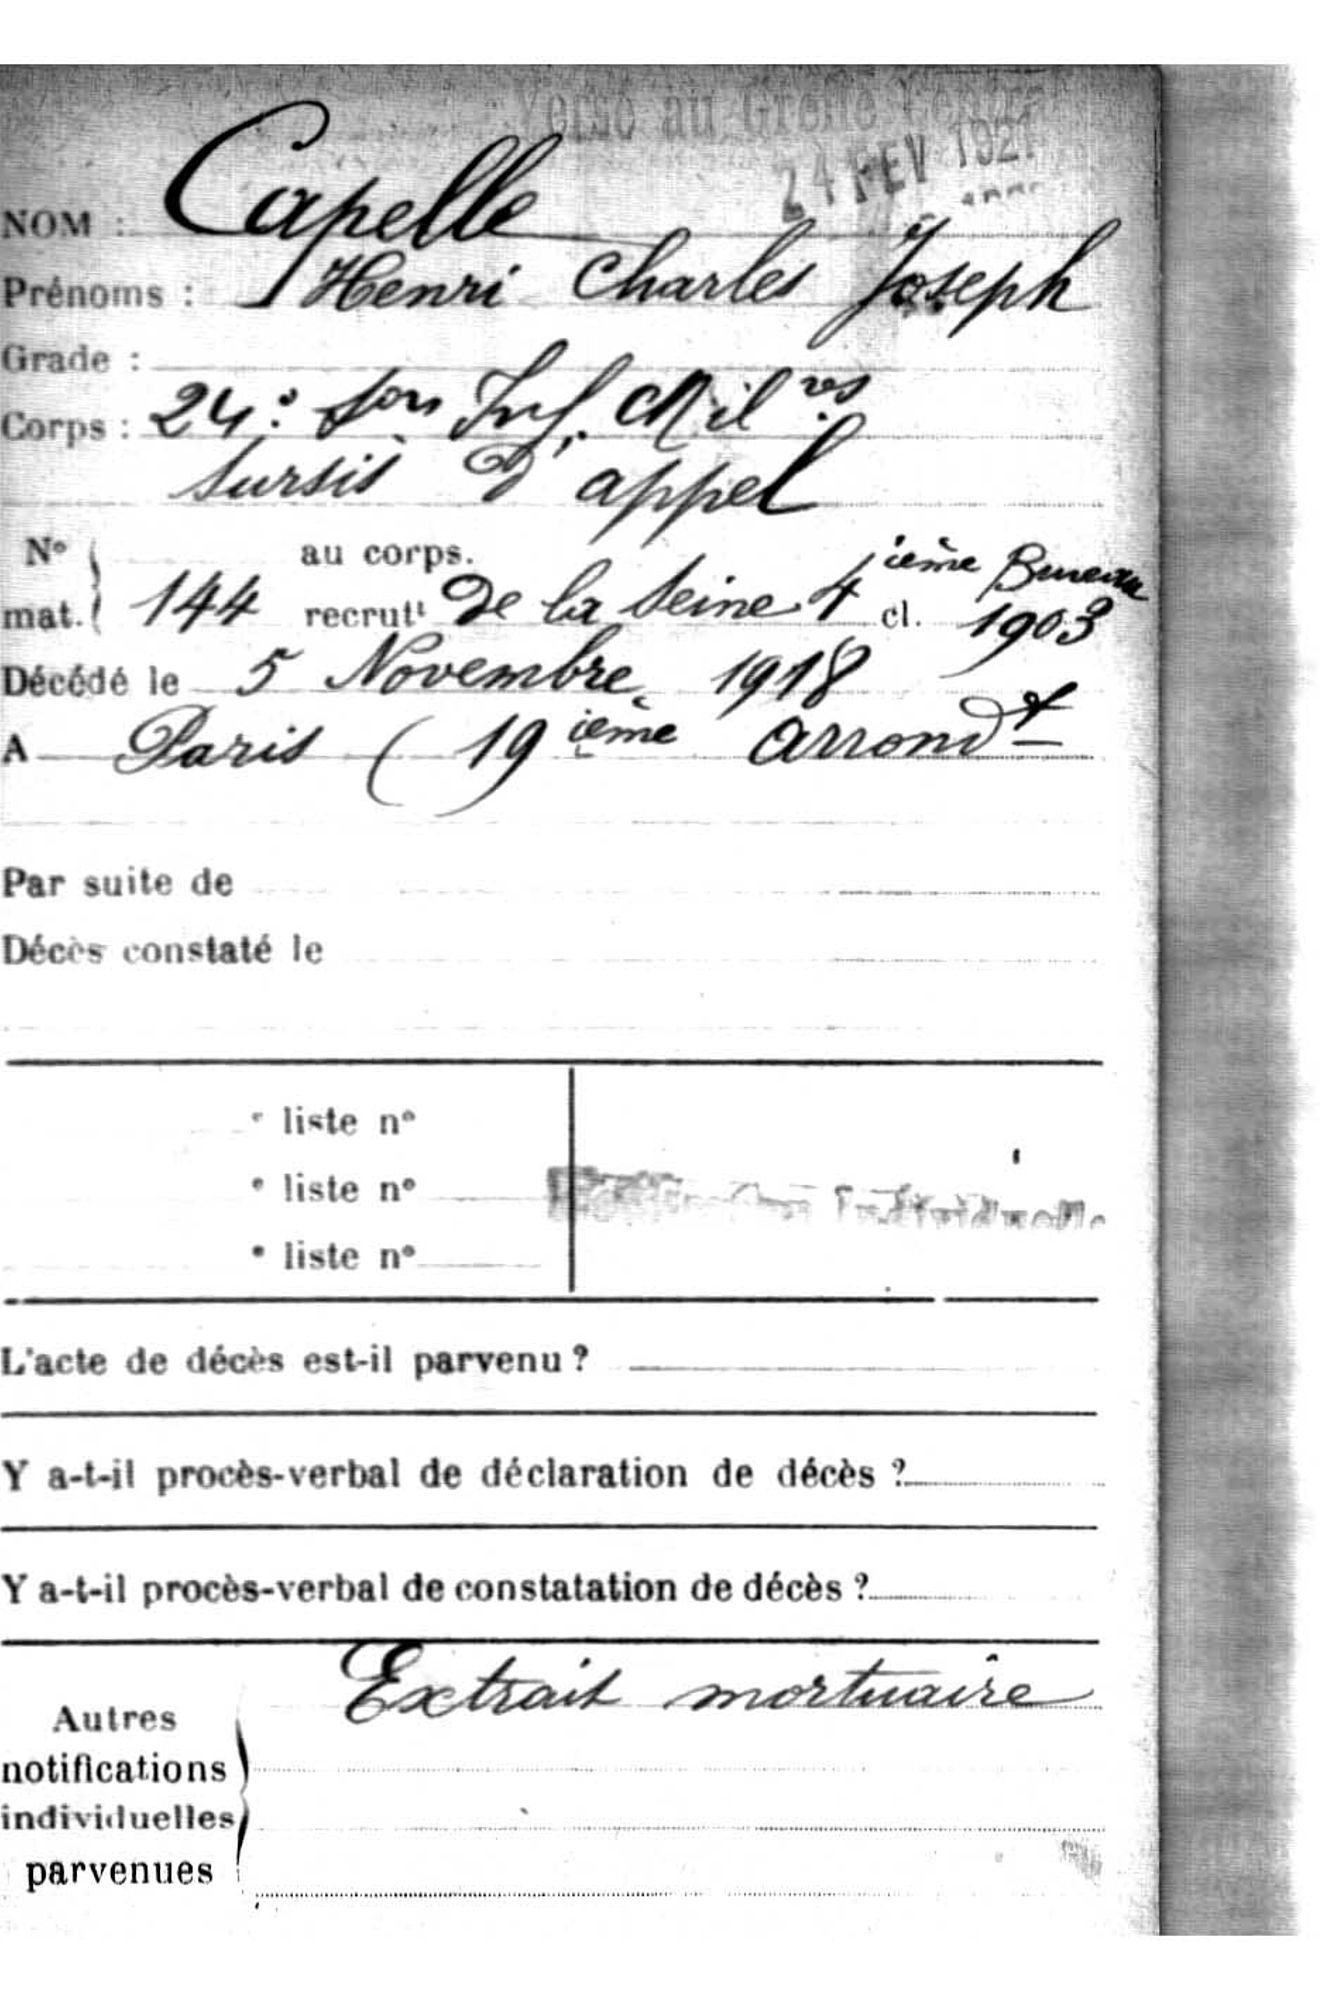 Versé au Greffe Central
24 FEV 1921
NOM : Capelle
Prénoms : Henri Charles Joseph
Grade :
Corps : 24e Son Inf. Mil res
Sursis d'appel
No au corps.
mat. 144 recrutt De la Seine 4 ième Bureau cl. 1903
Décédé le 5 Novembre 1918
A Paris (19 ième arrondt
Par suite de
Décès constaté le
e liste no
e liste no
e liste no
individuelle
L'acte de décès est-il parvenu ?
Y a-t-il procès-verbal de déclaration de décès ?
Y a-t-il procès-verbal de constatation de décès ?
Extrait mortuaire
Autres
notifications
individuelles
parvenues